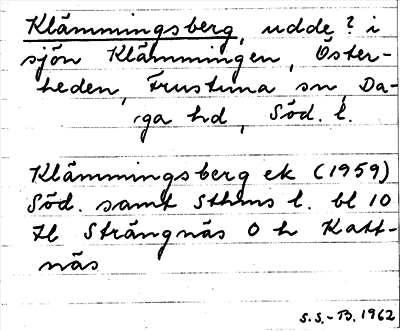 Klämmingsberg, udde ? i
sjön Klämmingen, Öster-
heden, Frustuna sn, Da-
ga hd, Söd. l.
Klämmingsberg ek (1959)
Söd. samt Sthlms l. bl 10
H Strängnäs O h Katt-
näs
S.S.-B. 1962